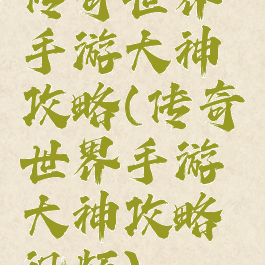 传奇世界
手游大神
攻略(传奇
世界手游
大神攻略
视频)